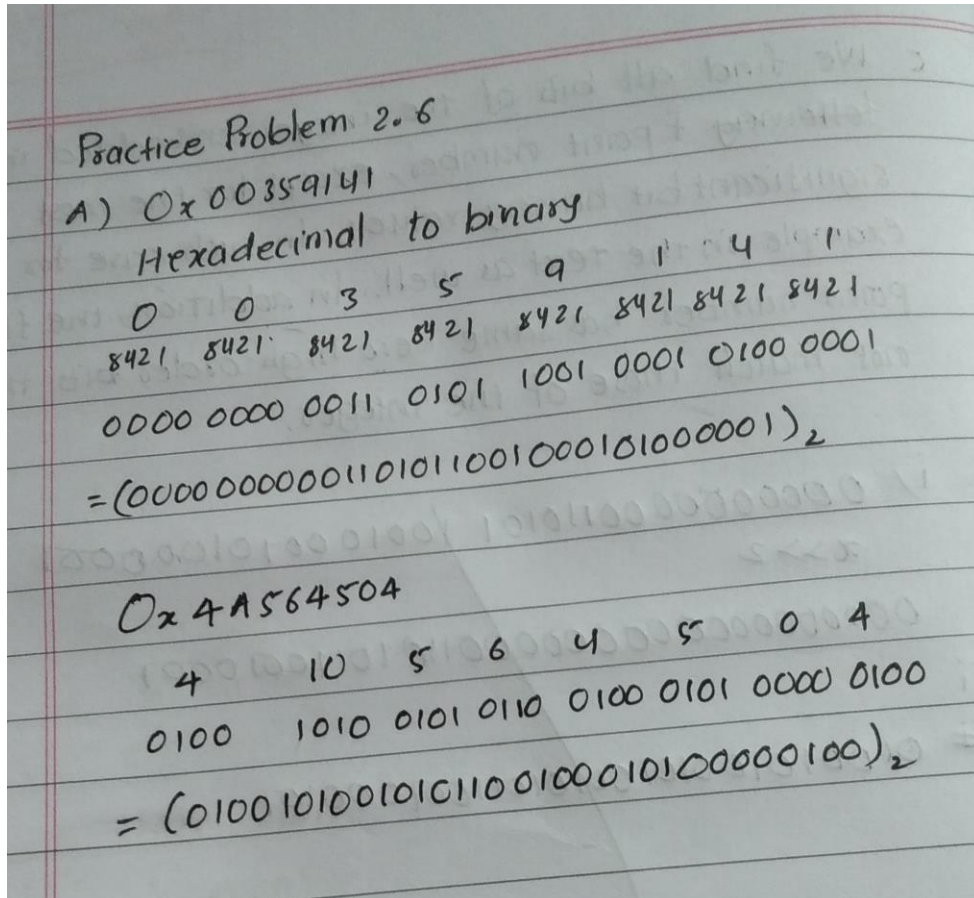 Practice Problem 2.6
A) 0x00359141
Hexadecimal to binary
0 0 3 5 9 1 4 1
8421 8421 8421 8421 8421 8421 8421 8421
0000 0000 0011 0101 1001 0001 0100 0001
=(00000000001101011001000101000001)2
0x4A564504
4 10 5 6 4 5 0 4
0100 1010 0101 0110 0100 0101 0000 0100
= (01001010010101100100010100000100)2